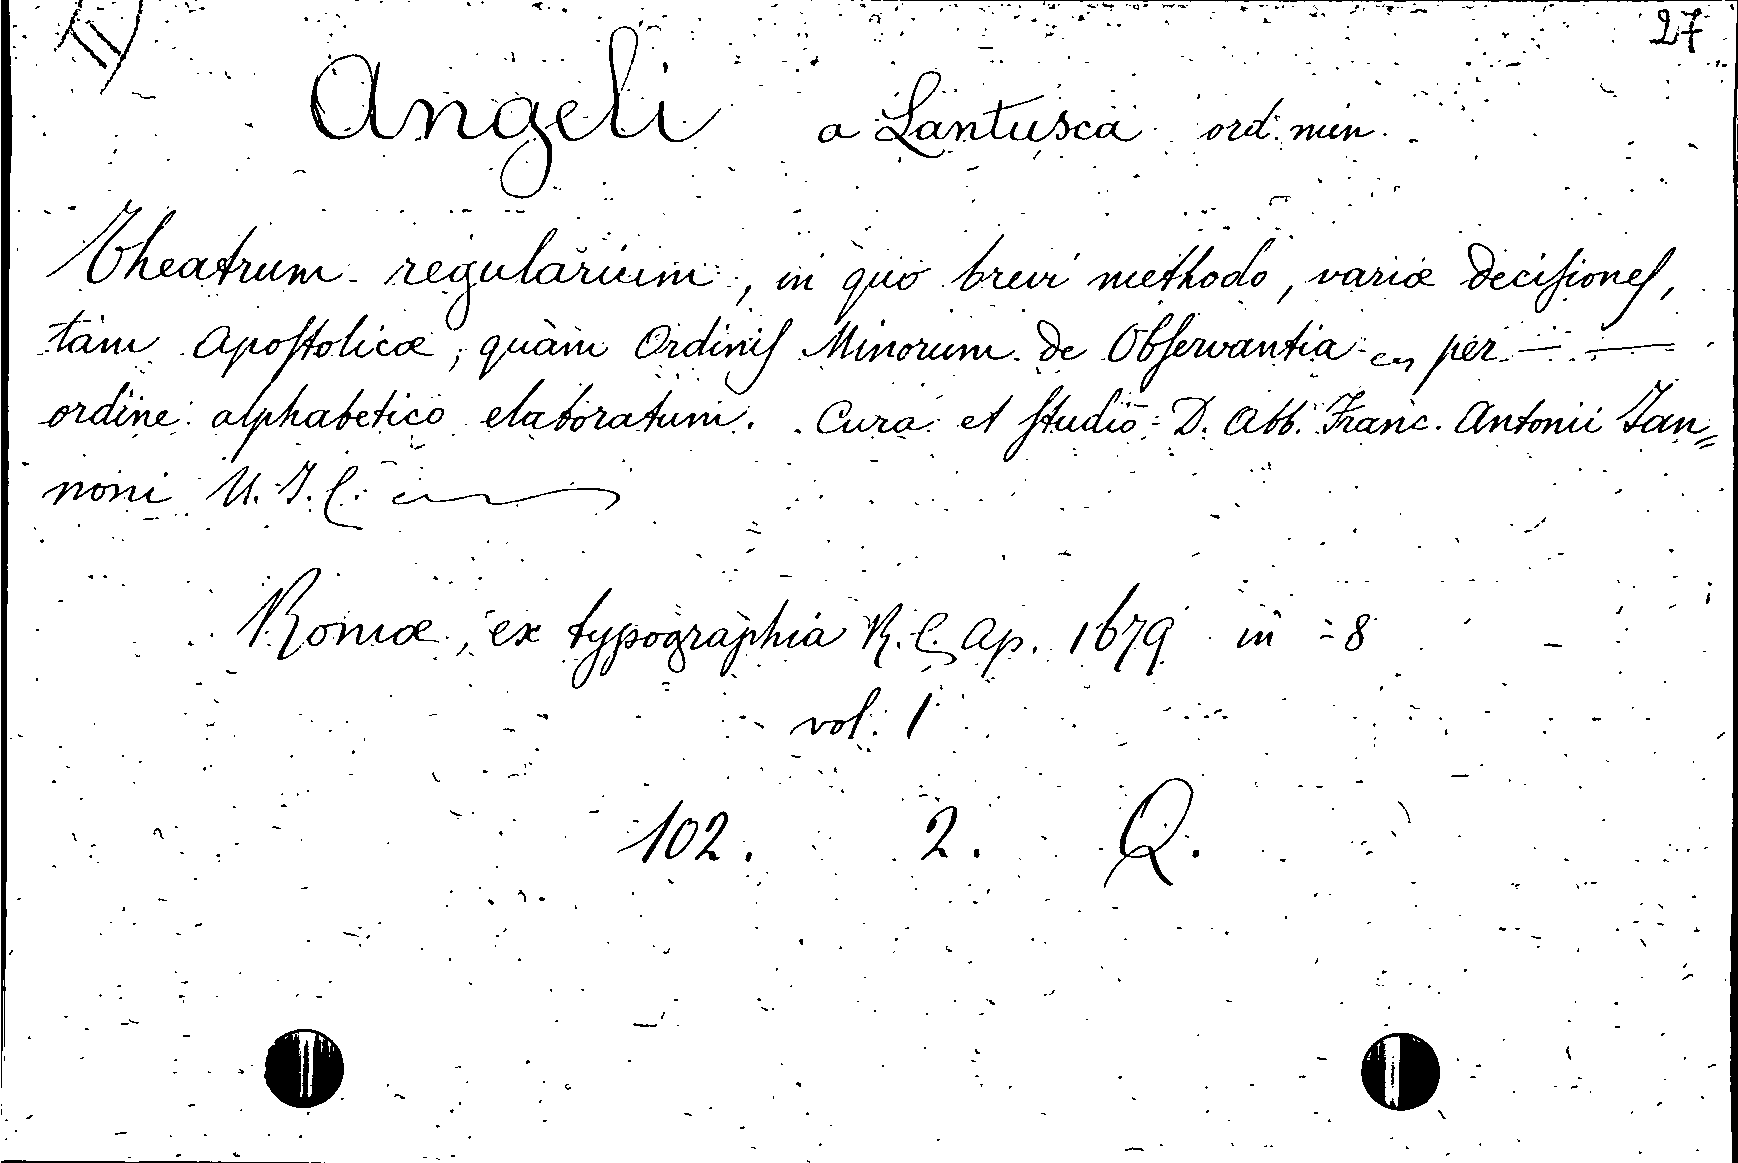 II 27
Angeli a Lantusca ord. min.
Theatrum regularium, in quo brevi methodo, variæ deciſioneſ,
tàm Apoſtolicæ, quàm Ordiniſ Minorum de Obſervantia per
ordine alphabetico elaboratum. Cura et ſtudio D. Abb. Franc. Antonii Jan=
noni U. J. C.
Romæ, ex typographia R. C. Ap. 1679 in -8
vol. 1
102. 2. Q.